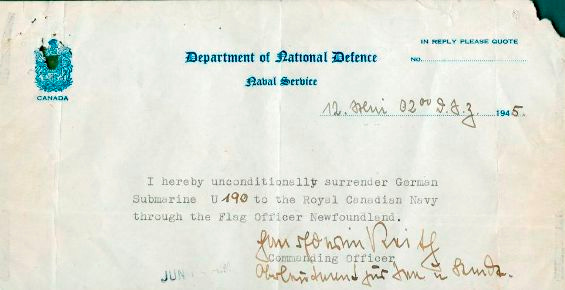 IN REPLY PLEASE QUOTE
Department of National Defence
No.
Naval Service
CANADA
12. Mai 02⁰⁰ D.S.Z. 1945.
I hereby unconditionally surrender German
Submarine U 190 to the Royal Canadian Navy
through the Flag Officer Newfoundland.
Hans Edwin Reith
Commanding Officer
Oberleutnant zur See u. Kmdt.
JUN